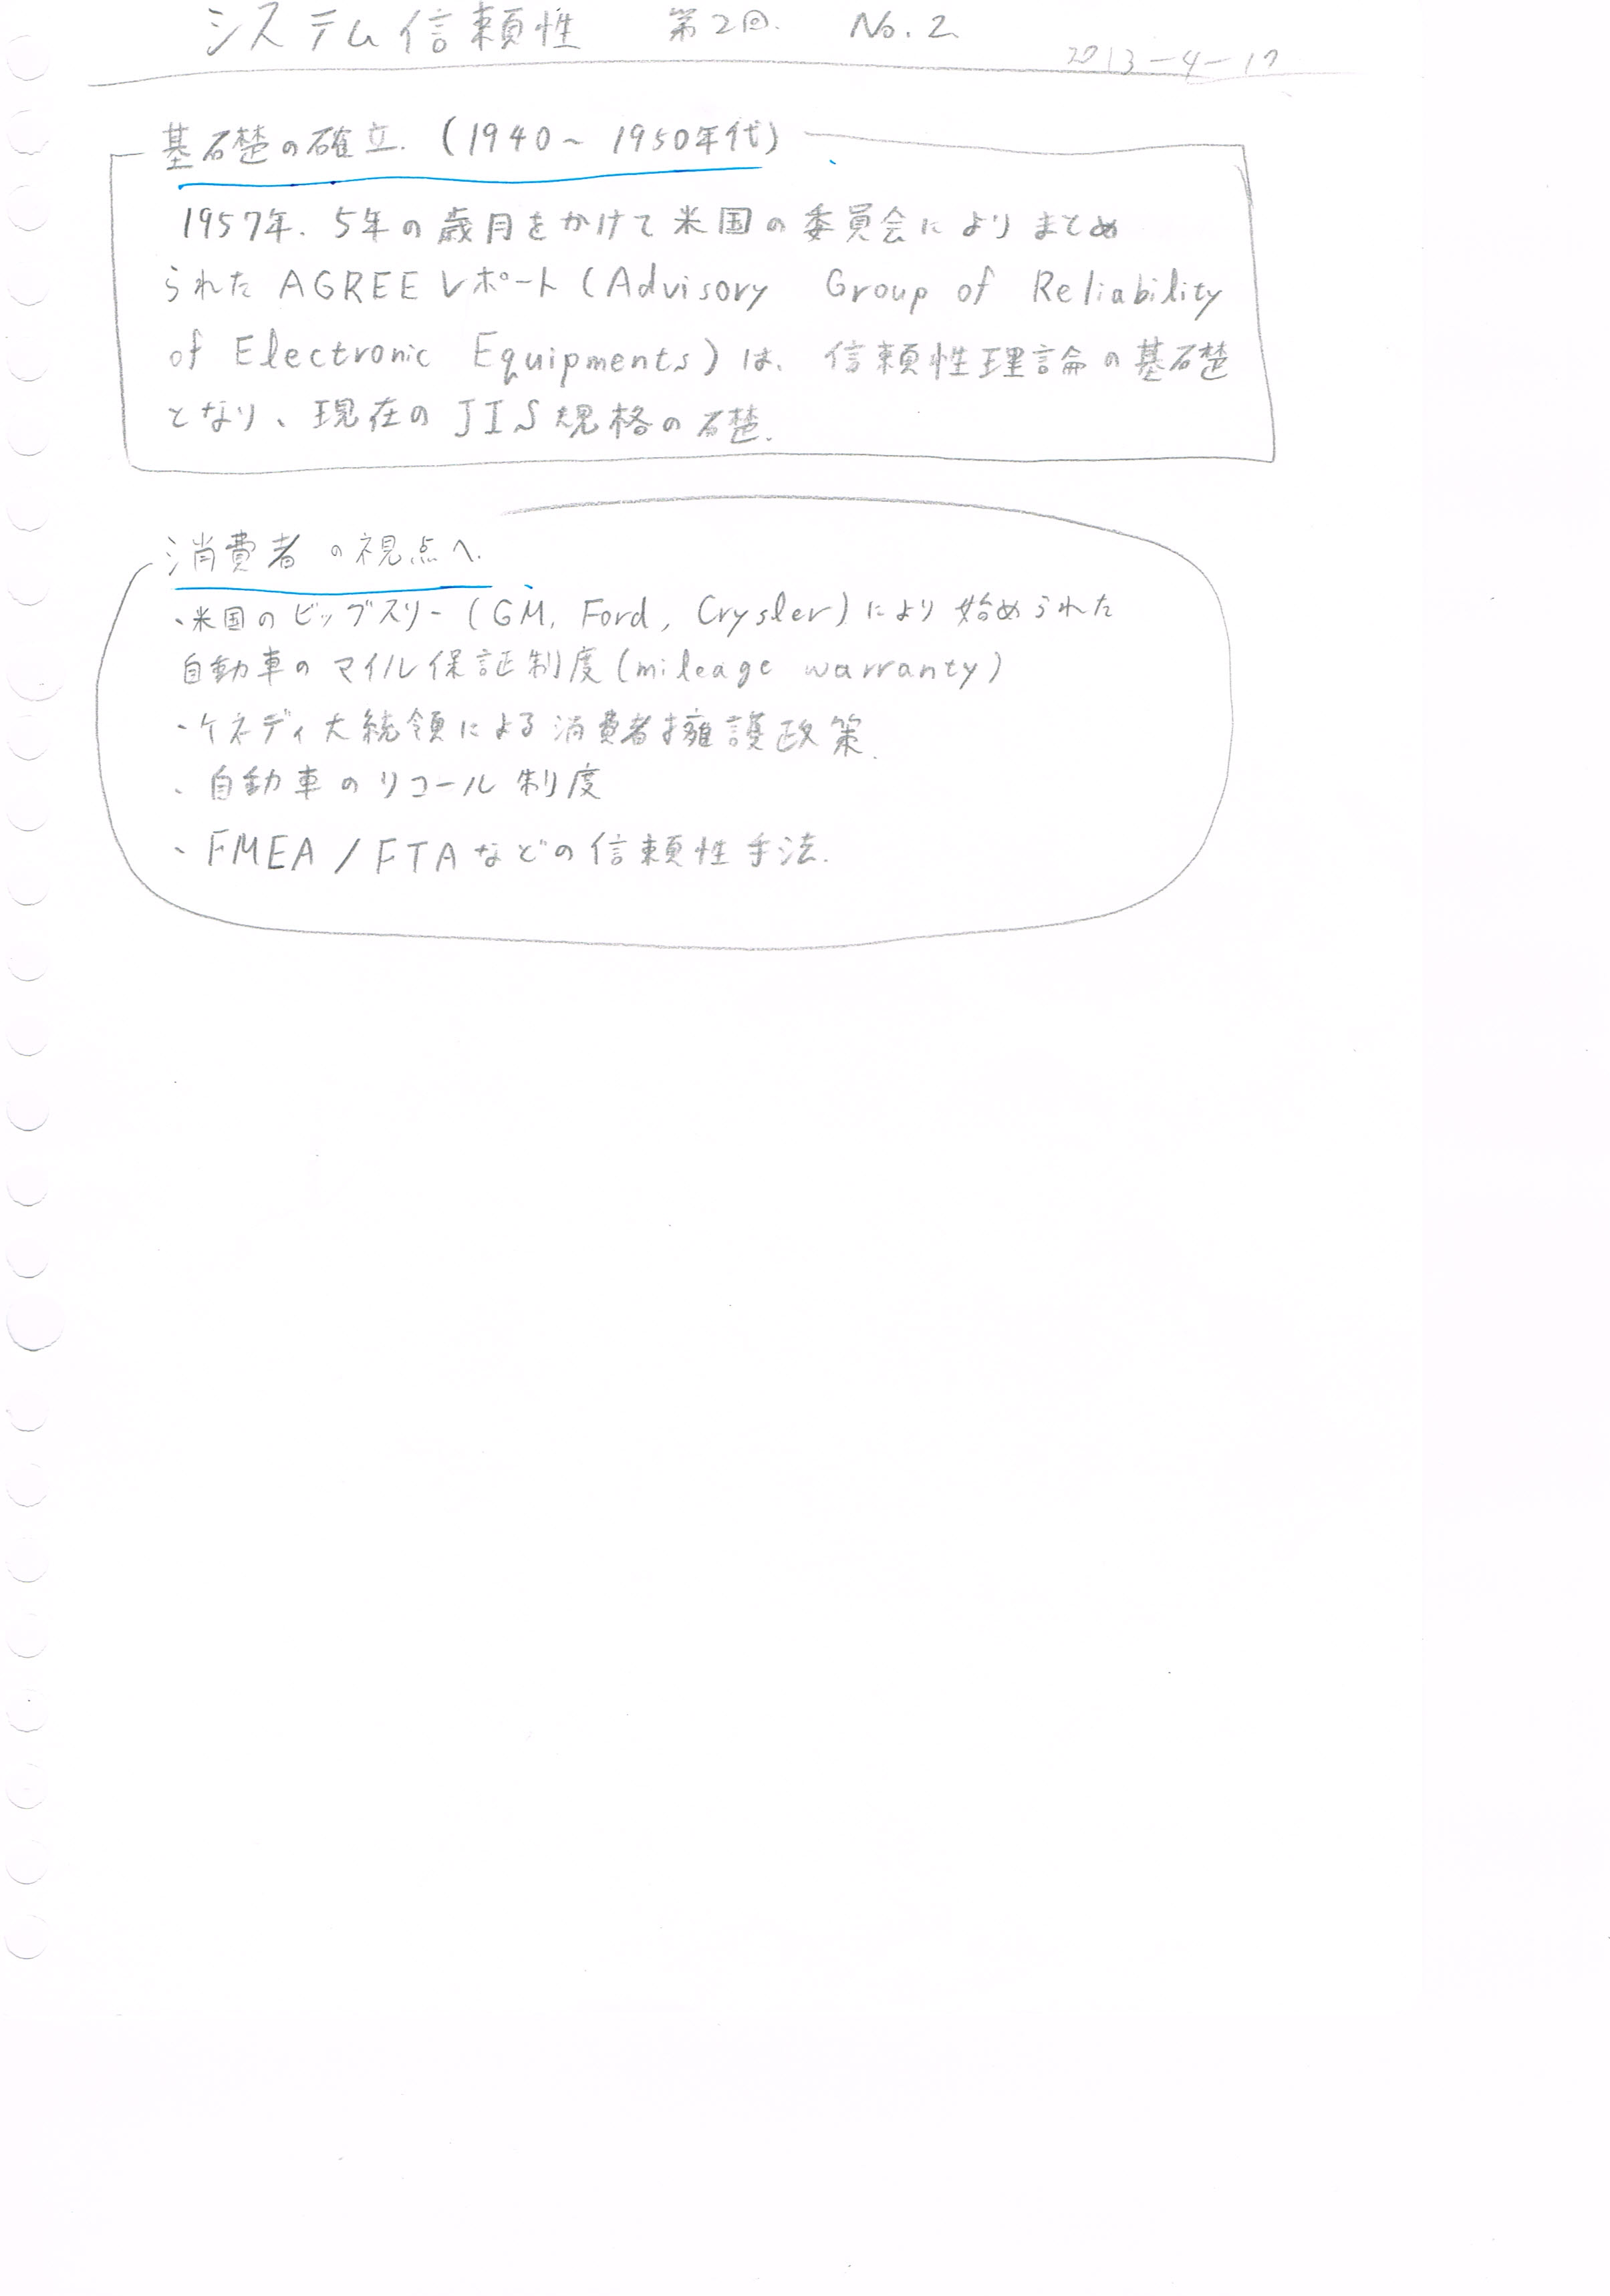 システム信頼性 第2回. No.2
2013-4-17
基礎の確立. (1940~1950年代)
1957年. 5年の歳月をかけて米国の委員会によりまとめ
られた AGREEレポート(Advisory Group of Reliability
of Electronic Equipments)は、信頼性理論の基礎
となり、現在のJIS規格の礎.
消費者の視点へ.
・米国のビッグスリー(GM, Ford, Crysler)により始められた
自動車のマイル保証制度(mileage warranty)
・ケネディ大統領による消費者擁護政策.
・自動車のリコール制度
・FMEA/FTAなどの信頼性手法.